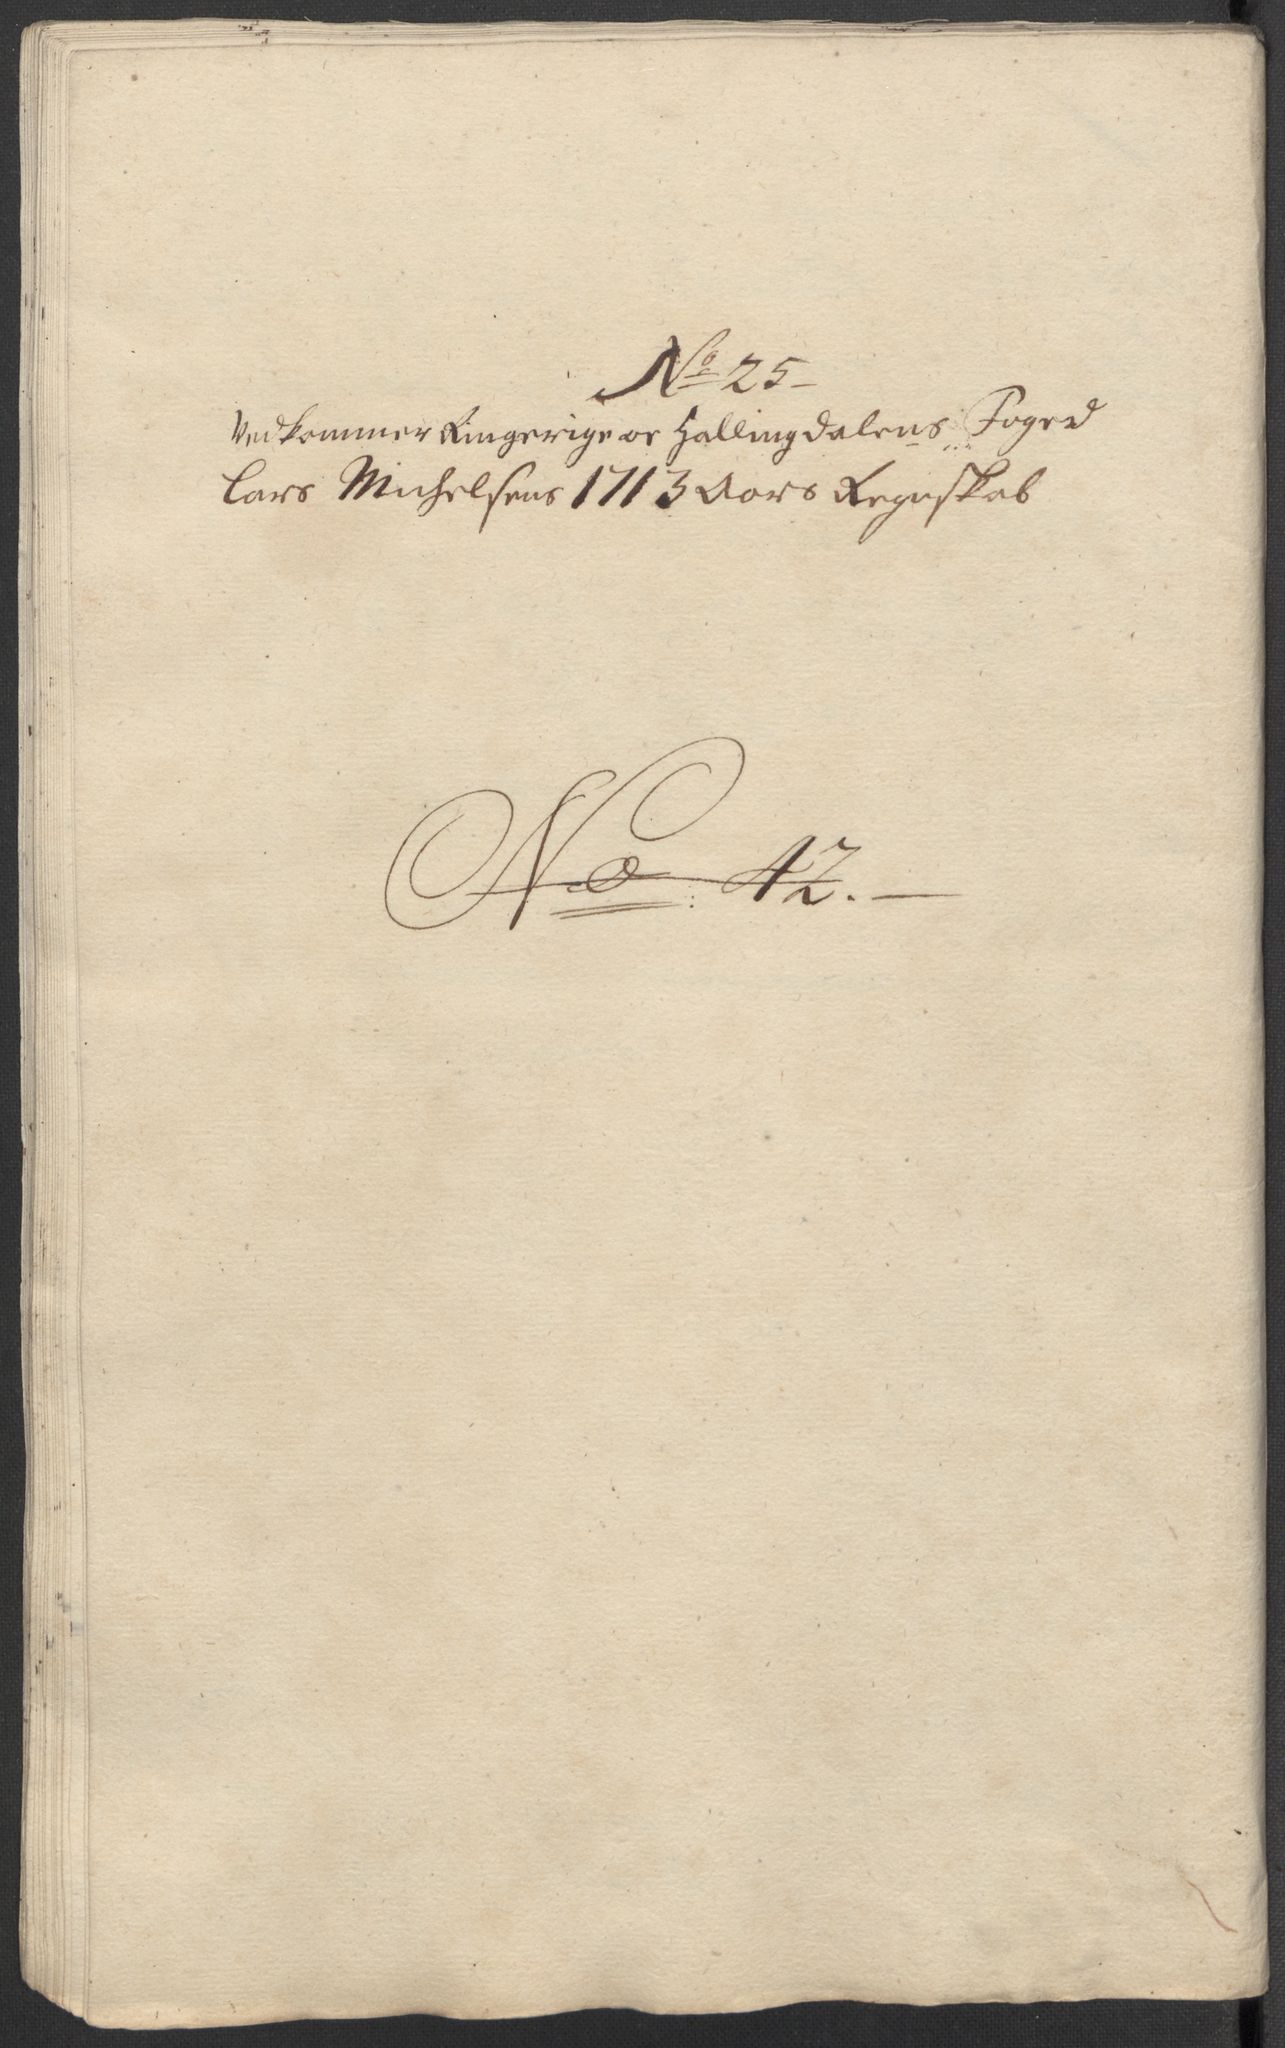 No 25
Vedkommer Ringerige oc Hallingdalens Foged
Lars Michelsens 1713 Aars Regnskab
No: 42.